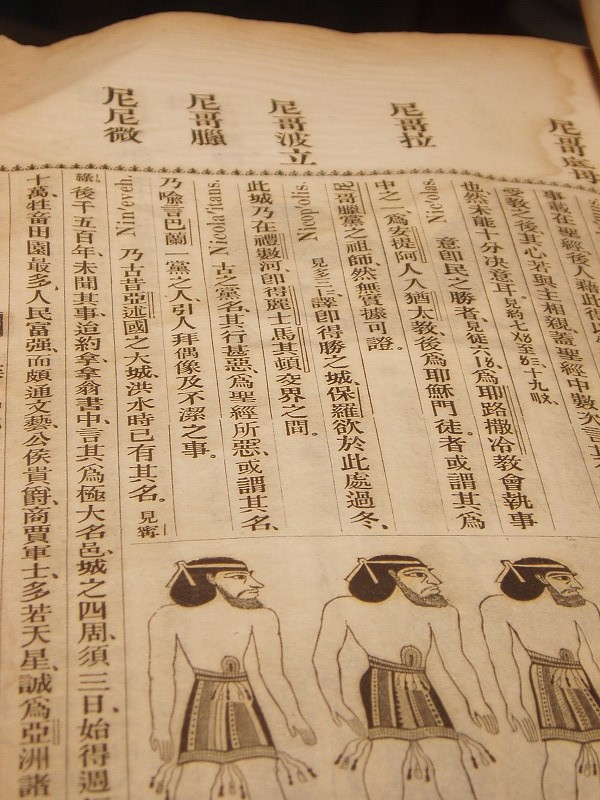 尼哥底母
尼哥拉
尼哥波立
尼哥臘
尼尼微
受教之後其心若與主相親蓋聖經中數次言其
也然未能十分決意耳見約七
Nicolas. 意即民之勝者見徒六為耶路撒冷教會執事
中之一為安提阿人入猶太教後為耶穌門徒者或謂其為
尼哥臘黨之祖師然無實據可證。
Nicopolis. 見多三譯即得勝之城保羅欲於此處過冬、
此城乃在禮數河即得麗士馬其頓交界之間。
Nicola'itans. 古之黨名其行甚惡為聖經所惡或謂其名
乃喻言巴蘭一黨之人引人拜偶像及不潔之事。
Nin'eveh. 乃古昔亞述國之大城洪水時已有其名。見
後千五百年未聞其事迨約拿拿翁書中言其為極大名邑、城之四周須三日始得週
十萬牲畜田園最多人民富强而頗通文藝公侯貴爵商賈軍士多若天星、誠為亞洲諸